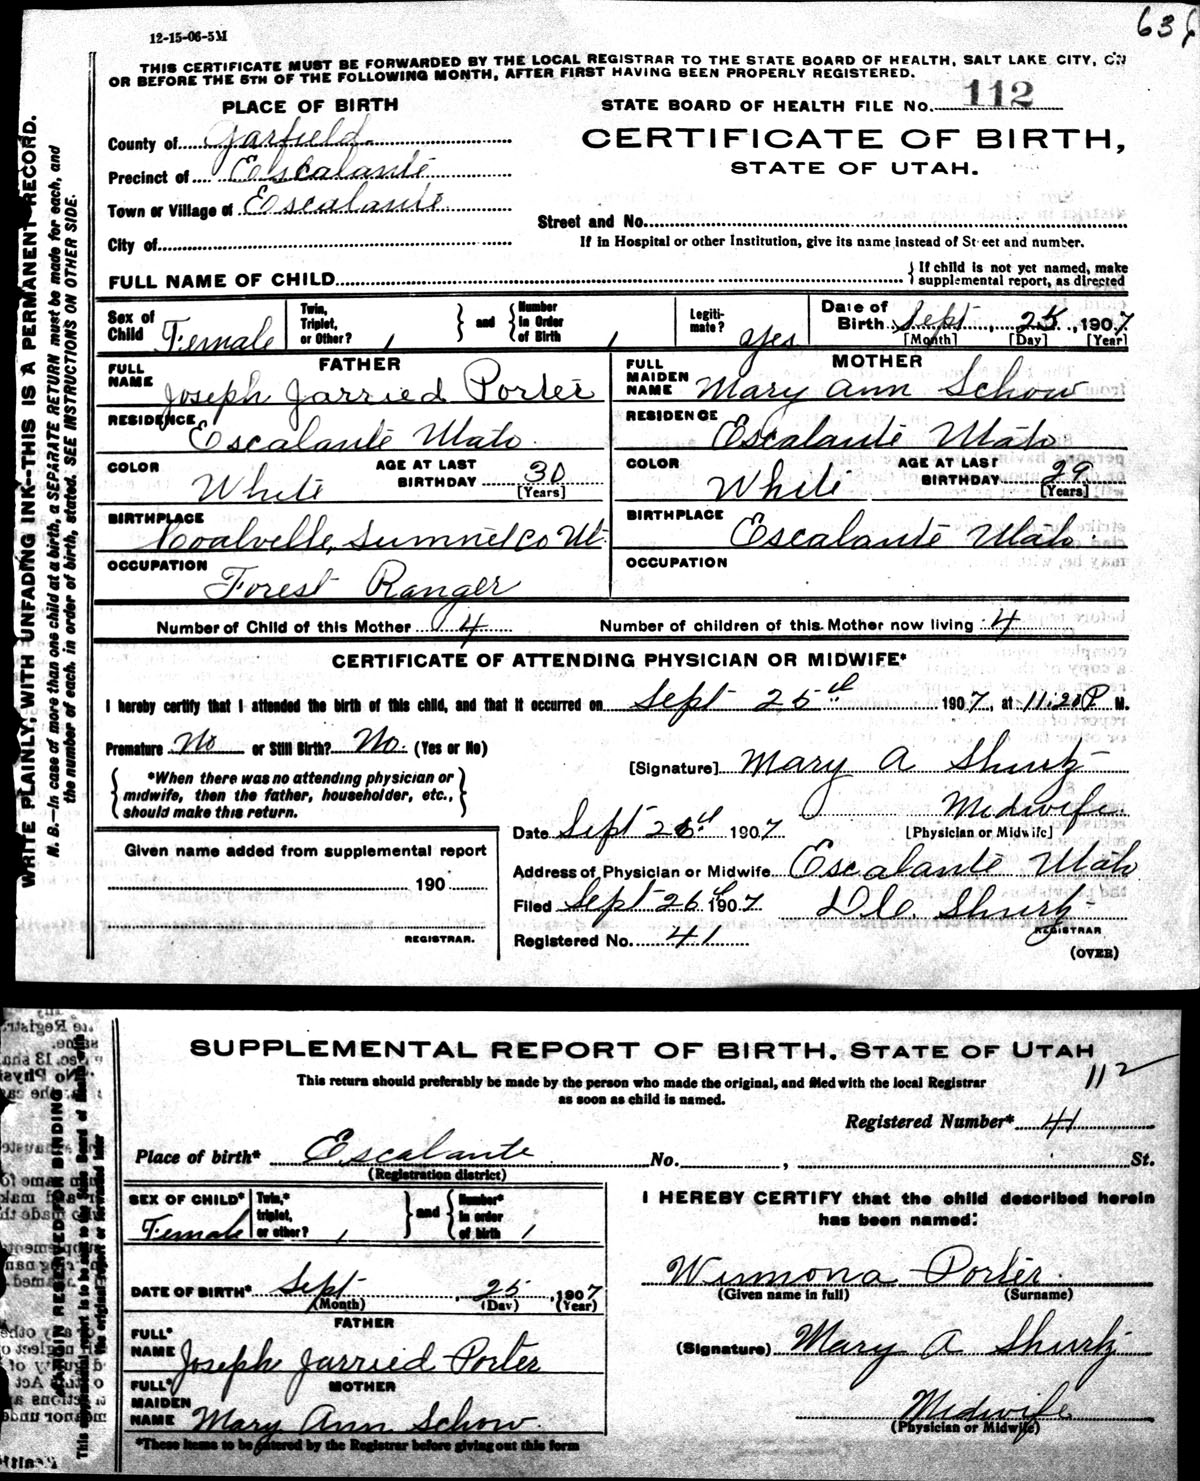 636
12-15-06-5M
THIS CERTIFICATE MUST BE FORWARDED BY THE LOCAL REGISTRAR TO THE STATE BOARD OF HEALTH, SALT LAKE CITY, ON
OR BEFORE THE 5TH OF THE FOLLOWING MONTH, AFTER FIRST HAVING BEEN PROPERLY REGISTERED.
PLACE OF BIRTH
STATE BOARD OF HEALTH FILE No. 112
County of Garfield
CERTIFICATE OF BIRTH,
Precinct of Escalante
STATE OF UTAH.
Town or Village of Escalante
Street and No.
City of
If in Hospital or other Institution, give its name instead of Street and number.
FULL NAME OF CHILD
If child is not yet named, make
supplemental report, as directed
Sex of Child Female
Twin, Triplet, or Other? 1
and
Number in Order of Birth 1
Legiti-mate? yes
Date of Birth Sept 25, 1907
[Month] [Day] [Year]
FATHER
MOTHER
FULL NAME Joseph Jarried Porter
FULL MAIDEN NAME Mary Ann Schow
RESIDENCE Escalante Utah
RESIDENCE Escalante Utah
COLOR White AGE AT LAST BIRTHDAY 30 [Years]
COLOR White AGE AT LAST BIRTHDAY 29 [Years]
BIRTHPLACE Coalville, Summet Co Ut.
BIRTHPLACE Escalante Utah.
OCCUPATION Forest Ranger
OCCUPATION
Number of Child of this Mother 4
Number of children of this Mother now living 4
CERTIFICATE OF ATTENDING PHYSICIAN OR MIDWIFE*
I hereby certify that I attended the birth of this child, and that it occurred on Sept 25th 1907, at 11:20 P M.
Premature No or Still Birth? No. (Yes or No)
[Signature] Mary A Shurtz
*When there was no attending physician or
midwife, then the father, householder, etc.,
should make this return.
Midwife.
[Physician or Midwife]
Date Sept 26th 1907
Given name added from supplemental report
Address of Physician or Midwife Escalante Utah
190
Filed Sept 26th 1907
Shurtz
REGISTRAR
REGISTRAR.
Registered No. 41
(OVER)
WRITE PLAINLY, WITH UNFADING INK--THIS IS A PERMANENT RECORD.
N. B.—In case of more than one child at a birth, a SEPARATE RETURN must be made for each, and
the number of each, in order of birth, stated. SEE INSTRUCTIONS ON OTHER SIDE.
SUPPLEMENTAL REPORT OF BIRTH. STATE OF UTAH
112
This return should preferably be made by the person who made the original, and filed with the local Registrar
as soon as child is named.
Registered Number* 41
Place of birth* Escalante No. , St.
(Registration district)
SEX OF CHILD* Female
Twin,* triplet, or other? 1
and
Number* in order of birth 1
I HEREBY CERTIFY that the child described herein
has been named:
Winmona Porter
(Given name in full) (Surname)
DATE OF BIRTH* Sept 25, 1907
(Month) (Day) (Year)
FATHER
FULL* NAME Joseph Jarried Porter
(Signature) Mary A Shurtz
MOTHER
FULL* MAIDEN NAME Mary Ann Schow
Midwife
(Physician or Midwife)
*These items to be entered by the Registrar before giving out this form
MARGIN RESERVED FOR BINDING